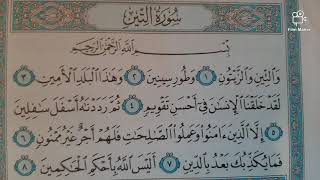 سُورَةُ التِّينِ
بِسْمِ اللَّهِ الرَّحْمَٰنِ الرَّحِيمِ
وَالتِّينِ وَالزَّيْتُونِ ١ وَطُورِ سِينِينَ ٢ وَهَٰذَا الْبَلَدِ الْأَمِينِ ٣
لَقَدْ خَلَقْنَا الْإِنسَانَ فِي أَحْسَنِ تَقْوِيمٍ ٤ ثُمَّ رَدَدْنَاهُ أَسْفَلَ سَافِلِينَ
٥ إِلَّا الَّذِينَ ءَامَنُوا وَعَمِلُوا الصَّالِحَاتِ فَلَهُمْ أَجْرٌ غَيْرُ مَمْنُونٍ
٦ فَمَا يُكَذِّبُكَ بَعْدُ بِالدِّينِ ٧ أَلَيْسَ اللَّهُ بِأَحْكَمِ الْحَاكِمِينَ ٨
Film Maker